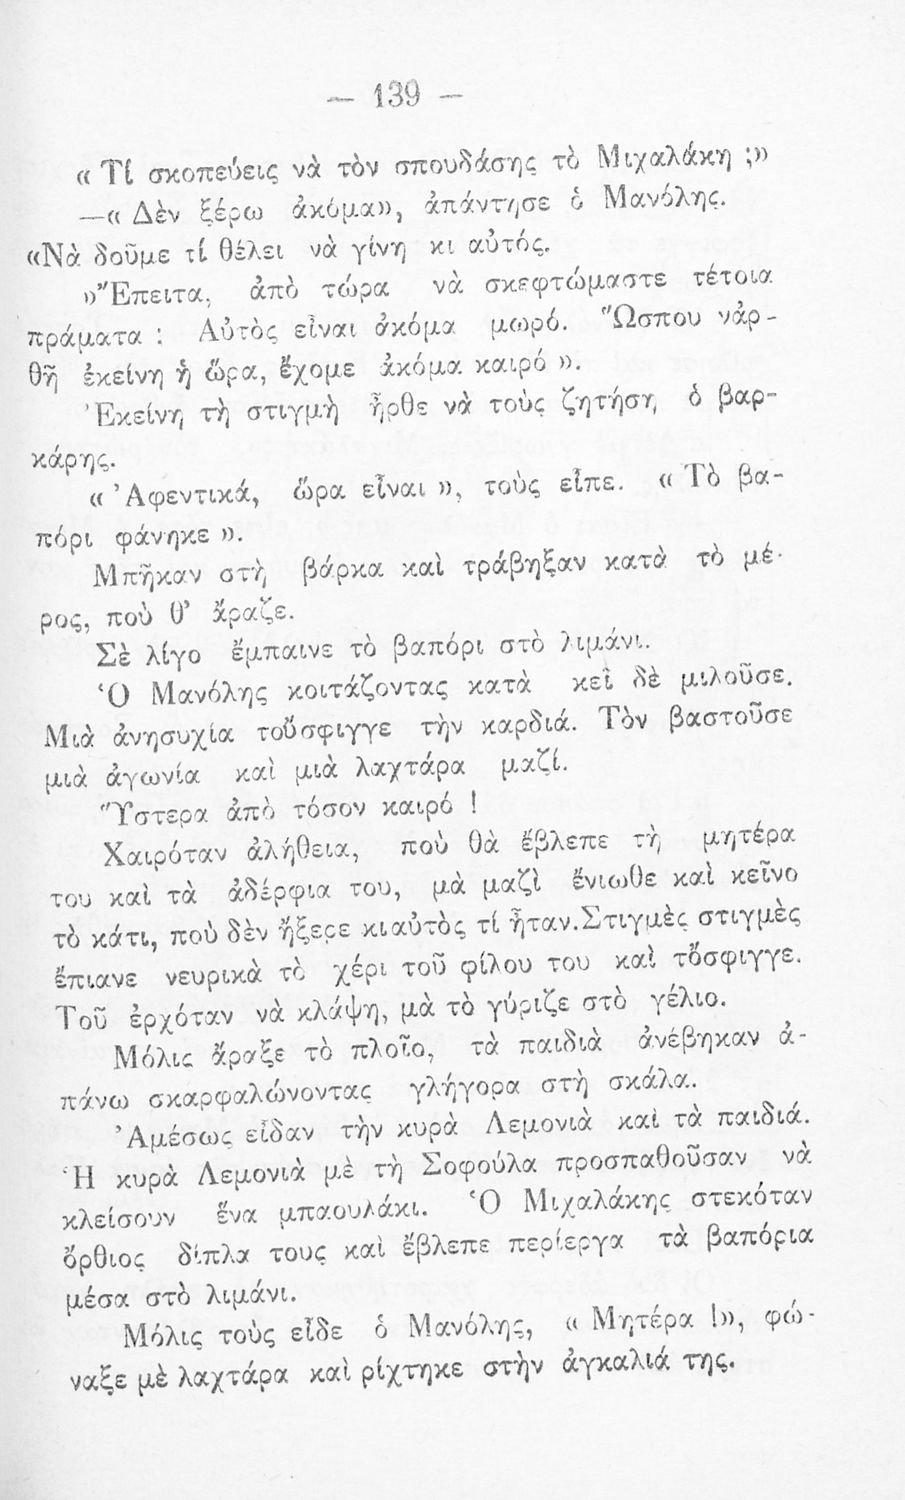 — 139 —
« Τί σκοπεύεις νὰ τὸν σπουδάσης τὸ Μιχαλάκη ;»
—« Δὲν ξέρω ἀκόμα», ἀπάντησε ὁ Μανόλης.
«Νὰ δοῦμε τί θέλει νὰ γίνη κι αὐτός.
»Ἔπειτα, ἀπὸ τώρα νὰ σκεφτώμαστε τέτοια
πράματα ; Αὐτὸς εἶναι ἀκόμα μωρό. Ὥσπου νἀρ-
θῆ ἐκείνη ἡ ὥρα, ἔχομε ἀκόμα καιρό ».
Ἐκείνη τὴ στιγμὴ ἦρθε νὰ τοὺς ζητήση ὁ βαρ-
κάρης.
« Ἀφεντικά, ὥρα εἶναι », τοὺς εἶπε. « Τὸ βα-
πόρι φάνηκε ».
Μπῆκαν στὴ βάρκα καὶ τράβηξαν κατὰ τὸ μέ-
ρος, ποὺ θ' ἄραζε.
Σὲ λίγο ἔμπαινε τὸ βαπόρι στὸ λιμάνι.
Ὁ Μανόλης κοιτάζοντας κατὰ κεῖ δὲ μιλοῦσε.
Μιὰ ἀνησυχία τοὔσφιγγε τὴν καρδιά. Τὸν βαστοῦσε
μιὰ ἀγωνία καὶ μιὰ λαχτάρα μαζί.
Ὕστερα ἀπὸ τόσον καιρό !
Χαιρόταν ἀλήθεια, ποὺ θὰ ἔβλεπε τὴ μητέρα
του καὶ τὰ ἀδέρφια του, μὰ μαζὶ ἔνιωθε καὶ κεῖνο
τὸ κάτι, ποὺ δὲν ἤξερε κιαὐτὸς τί ἦταν.Στιγμὲς στιγμὲς
ἔπιανε νευρικὰ τὸ χέρι τοῦ φίλου του καὶ τὄσφιγγε.
Τοῦ ἐρχόταν νὰ κλάψη, μὰ τὸ γύριζε στὸ γέλιο.
Μόλις ἄραξε τὸ πλοῖο, τὰ παιδιὰ ἀνέβηκαν ἀ-
πάνω σκαρφαλώνοντας γλήγορα στὴ σκάλα.
Ἀμέσως εἶδαν τὴν κυρὰ Λεμονιὰ καὶ τὰ παιδιά.
Ἡ κυρὰ Λεμονιὰ μὲ τὴ Σοφούλα προσπαθοῦσαν νὰ
κλείσουν ἕνα μπαουλάκι. Ὁ Μιχαλάκης στεκόταν
ὄρθιος δίπλα τους καὶ ἔβλεπε περίεργα τὰ βαπόρια
μέσα στὸ λιμάνι.
Μόλις τοὺς εἶδε ὁ Μανόλης, « Μητέρα !», φώ-
ναξε μὲ λαχτάρα καὶ ρίχτηκε στὴν ἀγκαλιά της.